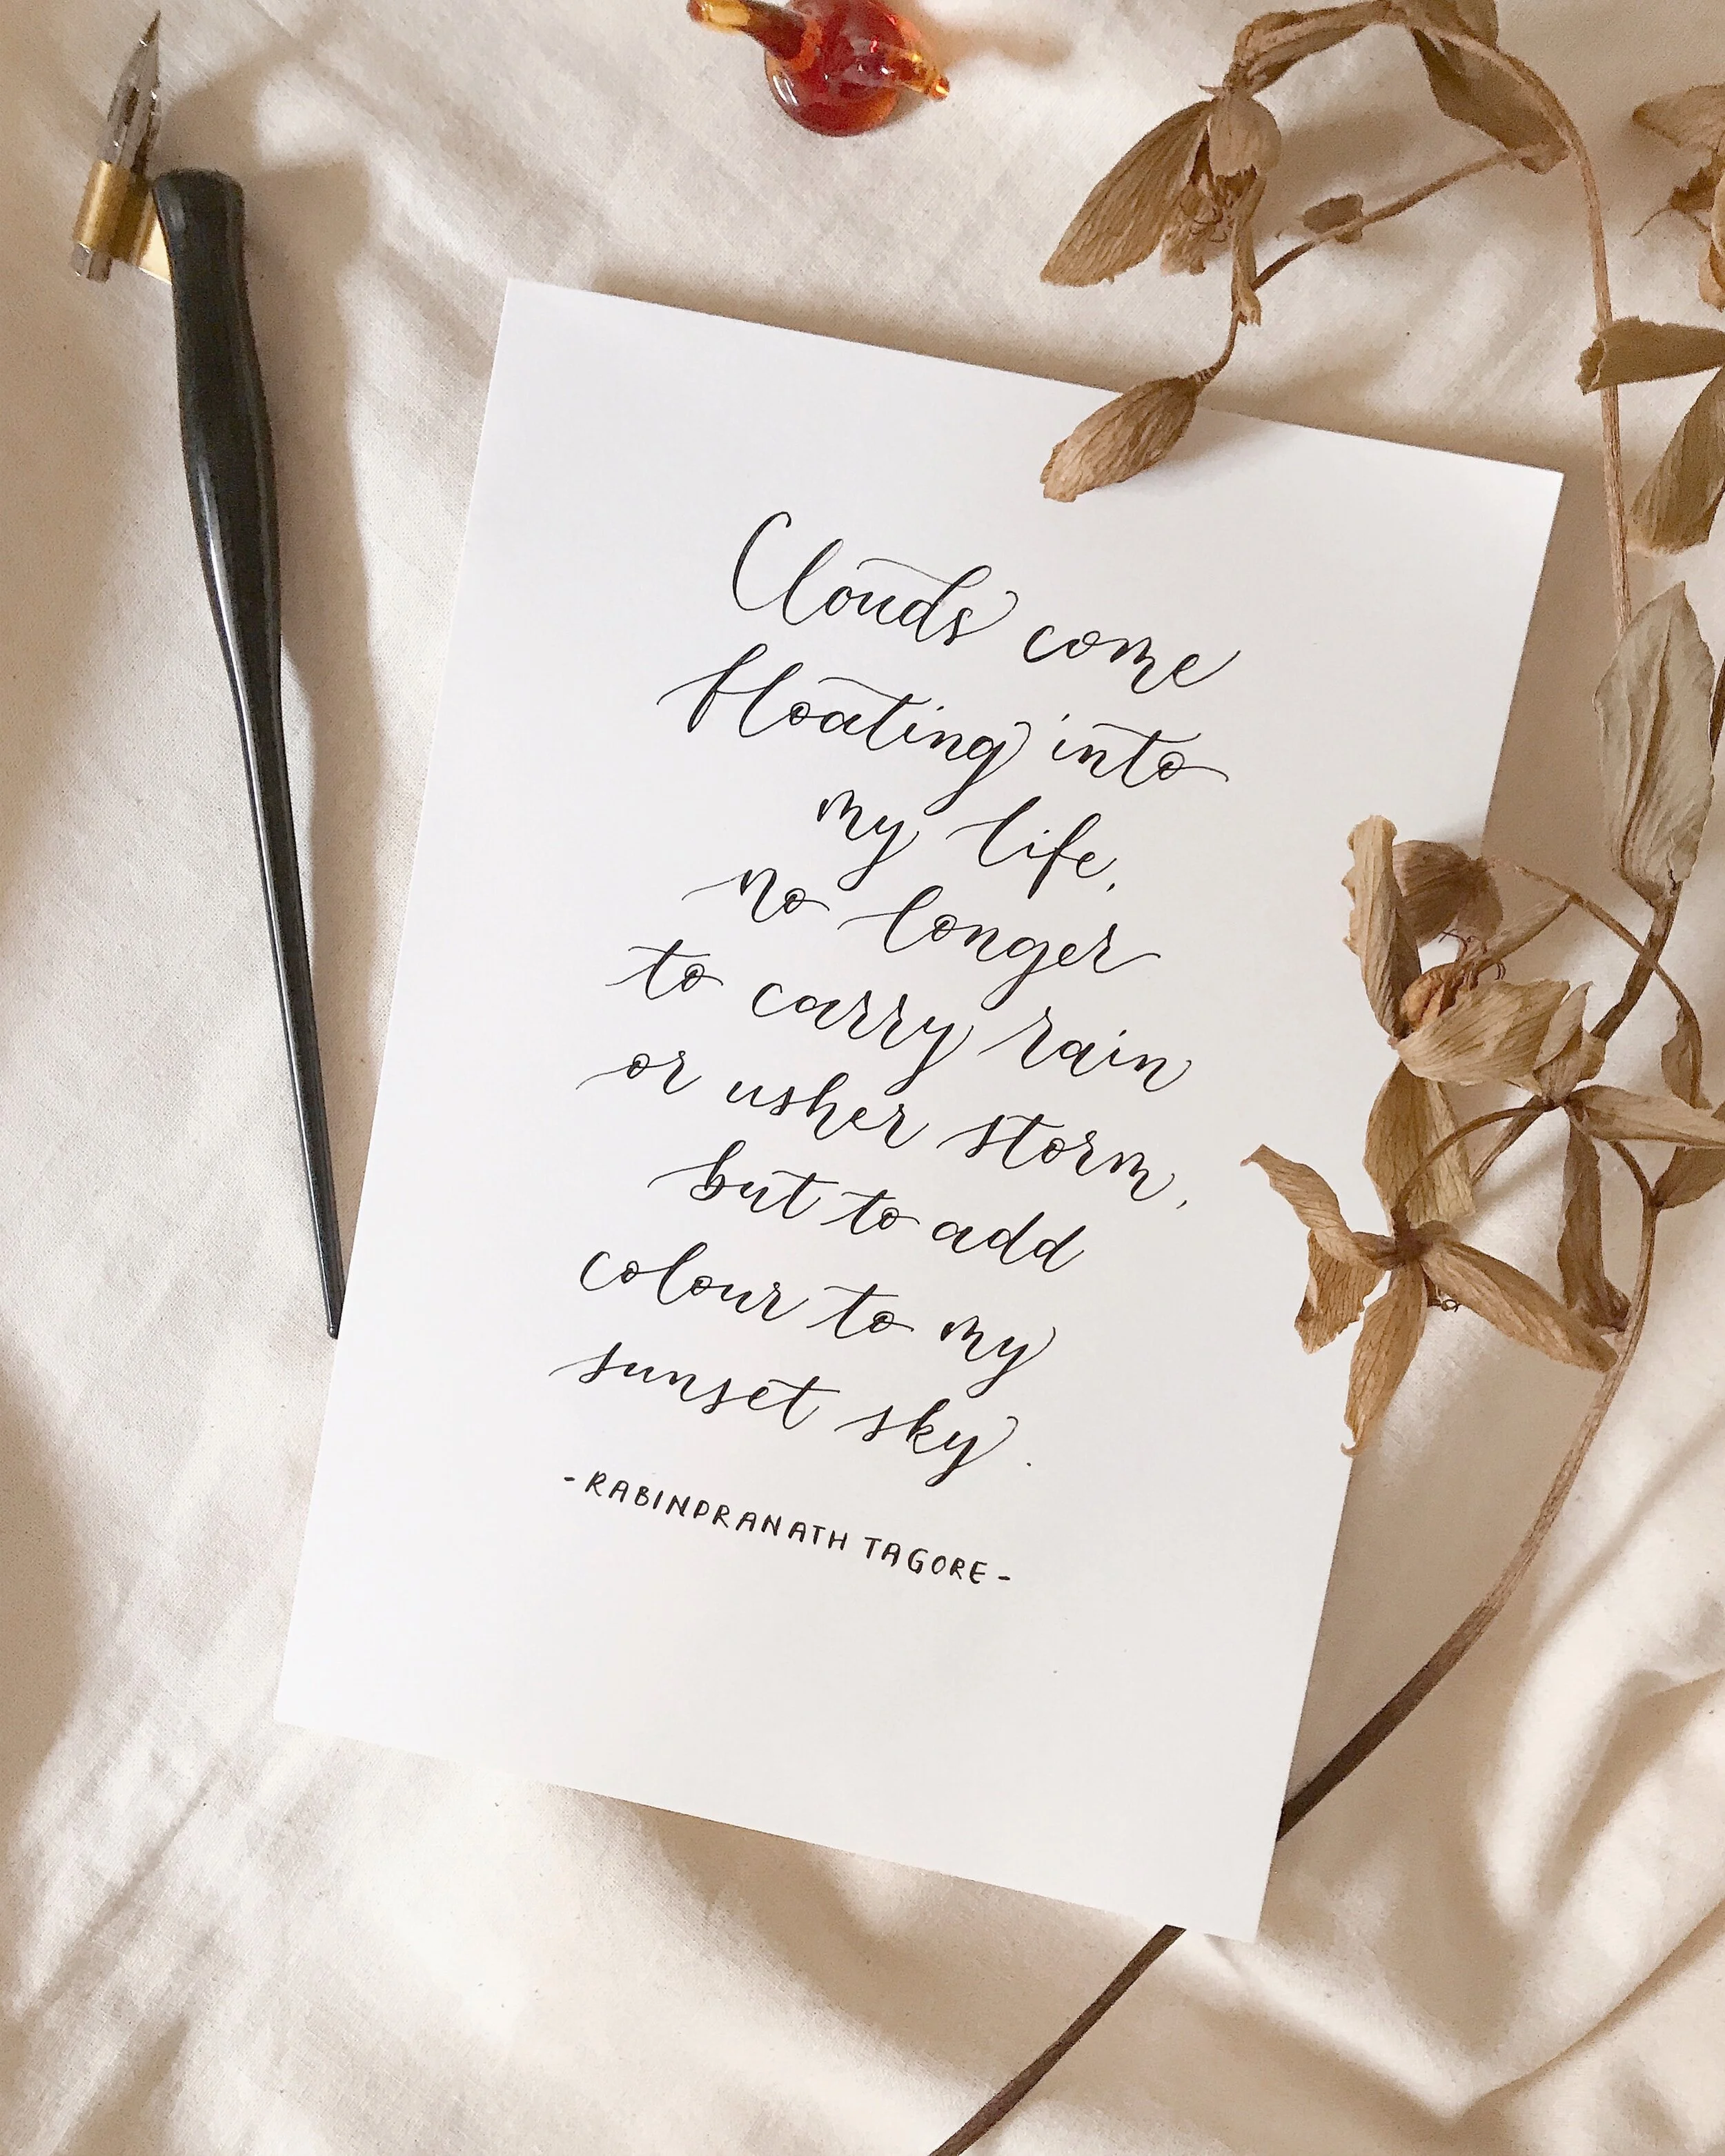 Clouds come
floating into
my life,
no longer
to carry rain
or usher storm,
but to add
colour to my
sunset sky.
-RABINDRANATH TAGORE-